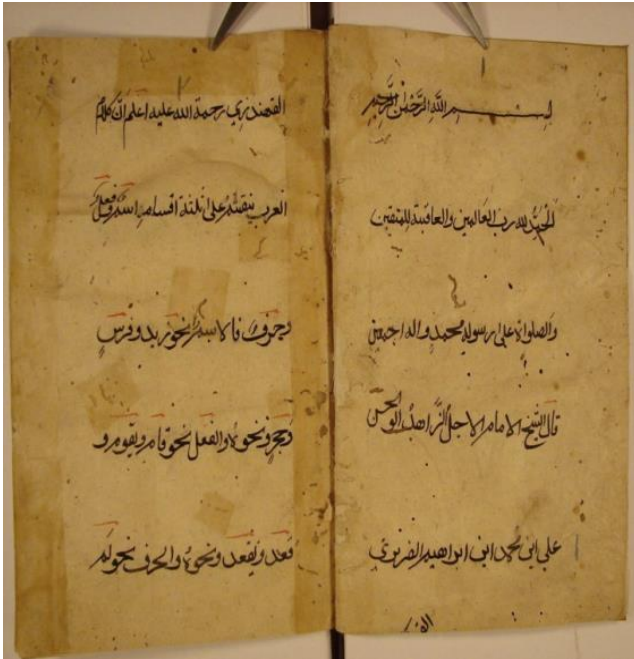 بسم الله الرحمن الرحيم
الحمد لله رب العالمين والعاقبة للمتقين
والصلواة على رسوله محمد واله اجمعين
قال الشيخ الامام الاجل الزاهد ابو الحسن
علي ابن محمد ابن ابراهيم الضريري
القهندزي رحمة الله عليه اعلم ان كلام
العرب ينقسم على ثلثة اقسام اسم وفعل
وحرف فالاسم نحو زيد وفرس
وحجر ونحوه والفعل نحو قام ويقوم و
قعد ويقعد ونحوه والحرف نحو لم